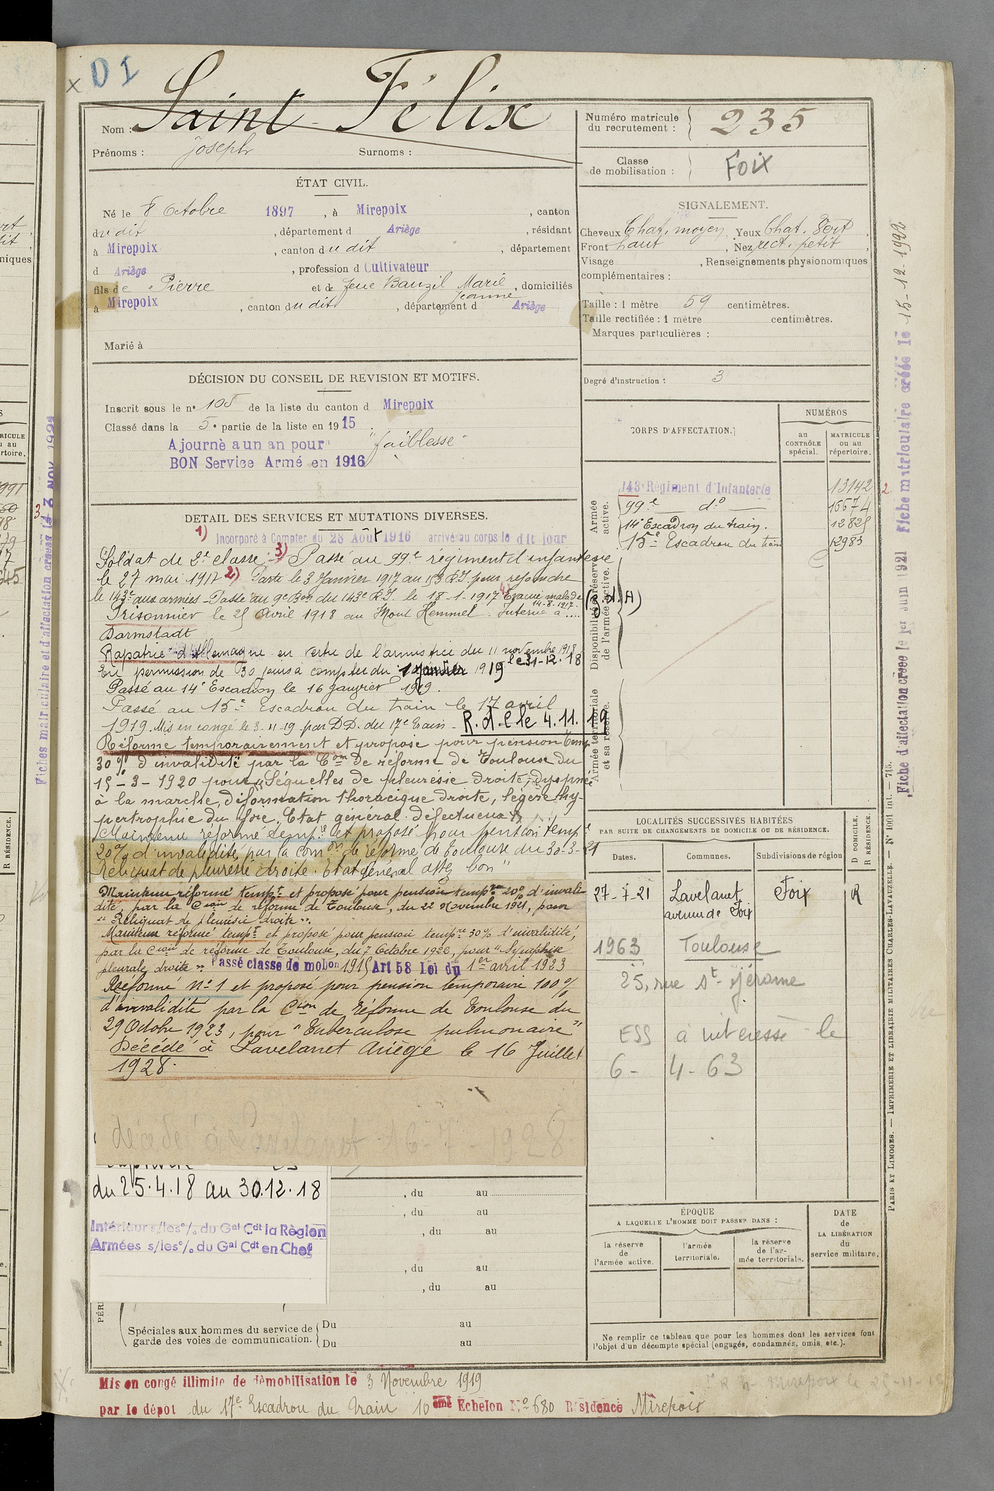 x DI
Nom : Saint-Félix
Prénoms : Joseph Surnoms :
Numéro matricule du recrutement : 235
Classe de mobilisation : Foix
ÉTAT CIVIL.
Né le 8 Octobre 1897, à Mirepoix, canton
du dit, département d Ariège, résidant
à Mirepoix, canton du dit, département
d Ariège, profession d Cultivateur
fils de Pierre et de feue Bauzil Marie Jeanne, domiciliés
à Mirepoix, canton du dit, département d Ariège
Marié à
SIGNALEMENT.
Cheveux Chat. moyen, Yeux Chat. Vert,
Front haut, Nez rect. petit
Visage , Renseignements physionomiques
complémentaires :
Taille : 1 mètre 59 centimètres.
Taille rectifiée : 1 mètre centimètres.
Marques particulières :
Degré d'instruction : 3
DÉCISION DU CONSEIL DE REVISION ET MOTIFS.
Inscrit sous le n° 105 de la liste du canton d Mirepoix
Classé dans la 5e partie de la liste en 1915
Ajourné a un an pour "faiblesse"
BON Service Armé en 1916
CORPS D'AFFECTATION.
NUMÉROS
au CONTRÔLE spécial.
MATRICULE ou au répertoire.
Armée active.
143e Régiment d'Infanterie 13142
99e d° 16674
14e Escadron du train. 12825
15me Escadron du train 12983
Disponibilité et réserve de l'armée active.
Armée territoriale et sa réserve.
DETAIL DES SERVICES ET MUTATIONS DIVERSES.
1) Incorporé à Compter du 28 Août 1916 arrivé au corps le dit jour
Soldat de 2e classe. 3) Passé au 99e régiment d'infanterie
le 27 mai 1917 2) Parti le 3 Janvier 1917 au 153 R.I. pour rejoindre
le 143e aux armées - Passé au 9e Bon du 143e R.I. le 18.1.1917 Évacué malade 14.8.1917. (R.d.A)
Prisonnier le 25 Avril 1918 au Mont Kemmel. Interné à ....
Darmstadt
Rapatrié d'Allemagne en vertu de l'armistice du 11 novembre 1918
En permission de 30 jours à compter du 1 janvier 1919 le 31-12.18
Passé au 14e Escadron le 16 janvier 1919.
Passé au 15me Escadron du train le 17 avril
1919. Mis en congé le 3.11.19 par D.D. du 17e Train. R.d.C le 4.11.19
Réformé temporairement et proposé pour pension temp
30% d'invalidité par la Con de réforme de Toulouse du
15-3-1920 pour "Séquelles de pleurésie droite, dyspnée
à la marche, déformation thoracique droite, légère hy-
pertrophie du foie. Etat général défectueux"
Maintenu réformé temp. et proposé pour pension temp.
20% d'invalidité, par la Com. de réforme de Toulouse du 30-3-21
Reliquat de pleurésie droite. Etat général assez bon"
Maintenu réformé tempt et proposé pour pension tempre 20% d'invali-
dité, par la Cion de réforme de Toulouse, du 22 Novembre 1921, pour
"Reliquat de pleurésie droite".
Maintenu réformé tempt et proposé pour pension tempre 30% d'invalidité
par la Cion de réforme de Toulouse, du 7 Octobre 1922, pour "Symphise
pleurale droite". Passé classe de mobon 1915 Art 58 Loi du 1er avril 1923
Réformé N°1 et proposé pour pension temporaire 100%
d'invalidité par la Cion de Réforme de Toulouse du
29 Octobre 1923, pour "Tuberculose pulmonaire"
Décédé à Lavelanet Ariège le 16 Juillet
1928.
décédé à Lavelanet 16-7-1928
LOCALITÉS SUCCESSIVES HABITÉES
PAR SUITE DE CHANGEMENTS DE DOMICILE OU DE RÉSIDENCE.
Dates. Communes. Subdivisions de région D. DOMICILE. R. RÉSIDENCE.
27-7-21 Lavelanet Foix R
avenue de Foix
1963 Toulouse
25, rue St Jérome
ESS à intéressé le
6-4-63
du 25.4.18 au 30.12.18
Intérieur s/les o/. du Gal Cdt la Région
Armées s/les o/. du Gal Cdt en Chef
, du au
, du au
, du au
, du au
, du au
Spéciales aux hommes du service de garde des voies de communication.
Du au
Du au
ÉPOQUE
A LAQUELLE L'HOMME DOIT PASSER DANS :
la réserve de l'armée active.
l'armée territoriale.
la réserve de l'armée territoriale.
DATE de LA LIBÉRATION du service militaire.
Ne remplir ce tableau que pour les hommes dont les services font
l'objet d'un décompte spécial (engagés, condamnés, omis, etc.).
Mis en congé illimité de démobilisation le 3 Novembre 1919
par le dépôt du 17e Escadron du Train 10ème Echelon N° 680 Résidence Mirepoix
Fiche d'affectation créée le 1er Juin 1921 Fiche matriculaire créée le 15-12-1922
PARIS ET LIMOGES. — IMPRIMERIE ET LIBRAIRIE MILITAIRES CHARLES-LAVAUZELLE.
Fiches matriculaire et d'affectation créées le 3 NOV 1921